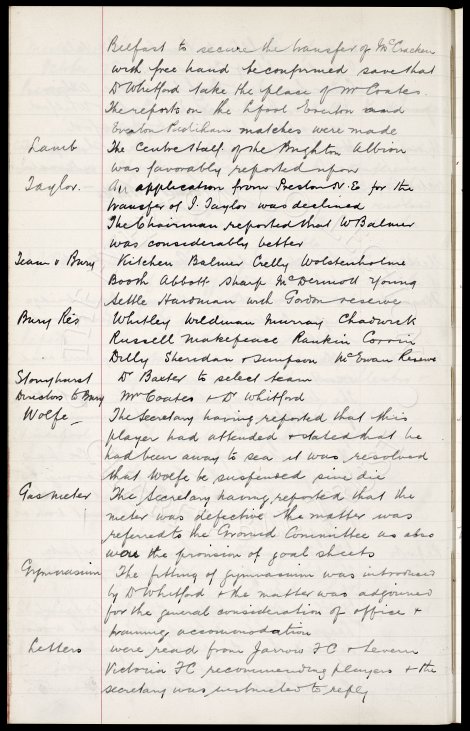 Belfast to secure the transfer of McCracken
with free hand be confirmed save that
Dr Whitford take the place of Mr Coates.
The reports on the L'pool Everton and
Everton Padiham matches were made
Lamb The Centre half of the Brighton Albion
was favorably reported upon
Taylor. An application from Preston N. E. for the
transfer of J. Taylor was declined
The Chairman reported that W Balmer
was considerably better
Team v Bury Kitchen Balmer Crelly Wolstenholme
Booth Abbott Sharp McDermott Young
Settle Hardman with Gordon reserve
Bury Res Whitley Wildman Murray Chadwick
Russell Makepeace Rankin Corrin
Dilly Sheridan & Simpson McEwan Reserve
Stonyhurst Dr Baxter to select team
Directors to Bury Mr Coates & Dr Whitford
Wolfe – The Secretary having reported that this
player had attended & stated that he
had been away to sea it was resolved
that Wolfe be suspended sine die
Gasmeter The Secretary having reported that the
meter was defective the matter was
referred to the Ground Committee as also
were the provision of goal sheets
Gymnasium The fitting of gymnasium was introduced
by Dr Whitford & the matter was adjourned
for the general consideration of office &
training accomodation
Letters were read from Jarrow FC &
Victoria FC recommending players & the
secretary was instructed to reply